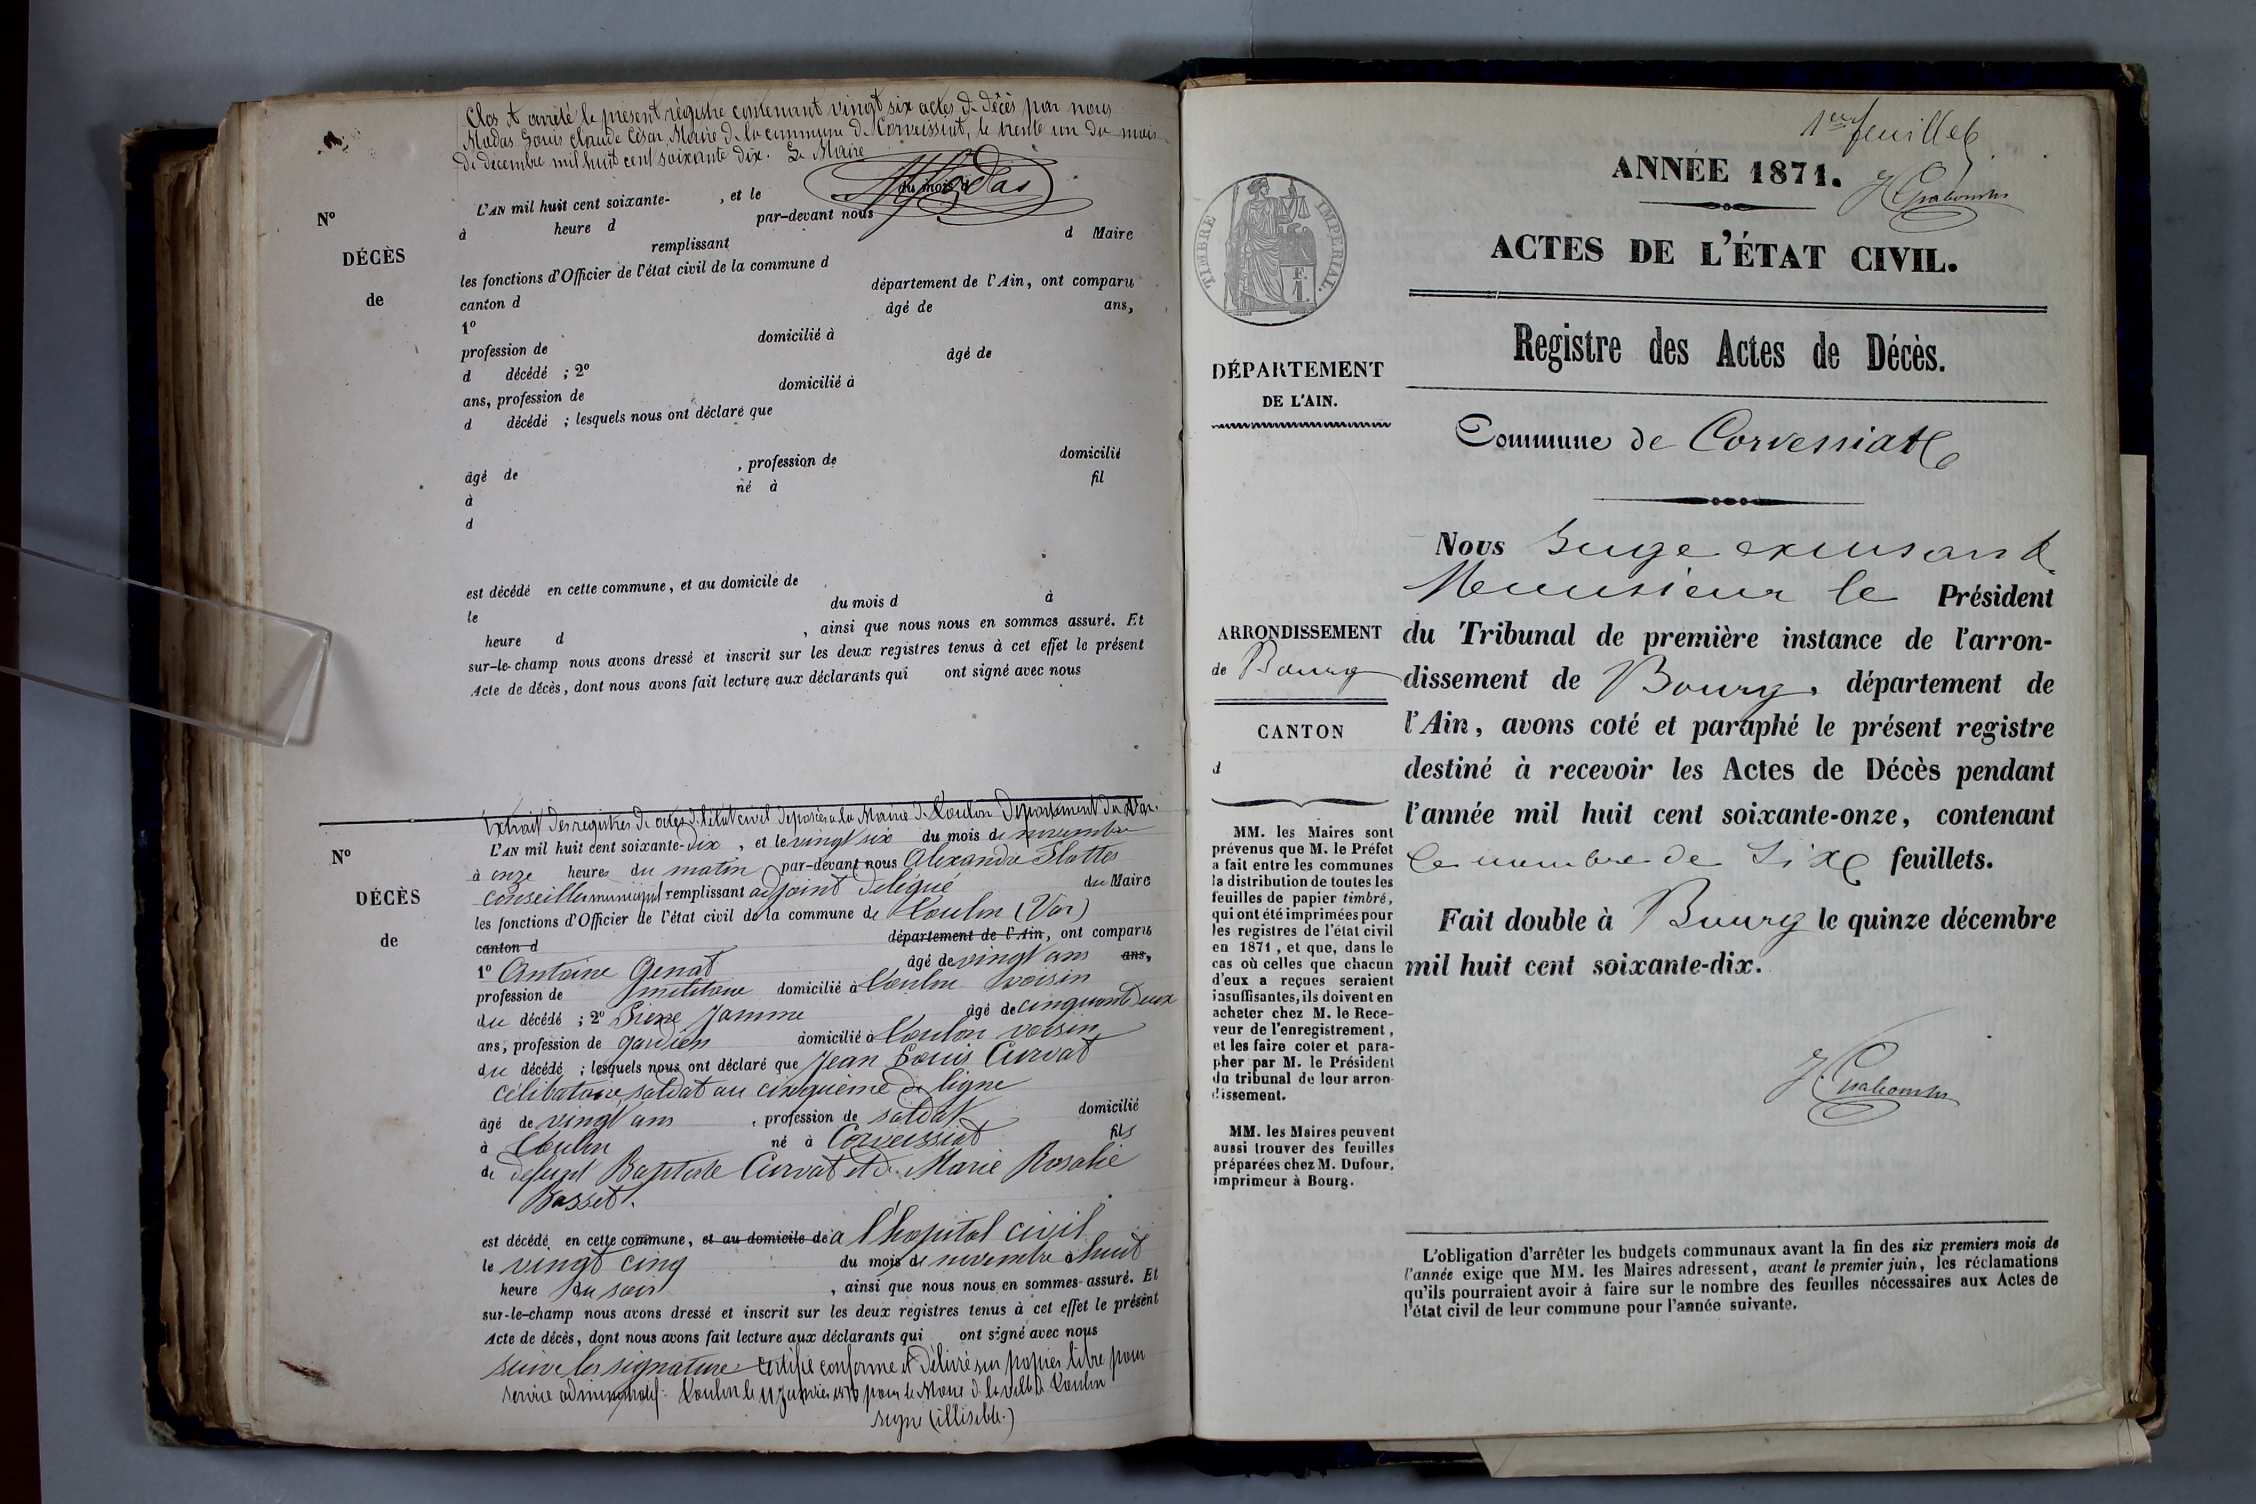 Clos et arrêté le présent régistre contenant vingt six actes de décès par nous
Modas Louis Claude César, Maire de la commune de Corveissiat, le trente un du mois
de decembre mil huit cent soixante dix. Le Maire
Modas
N°
DÉCÈS
de
L'AN mil huit cent soixante- , et le du mois d
à heure d par-devant nous
remplissant d Maire
les fonctions d'Officier de l'état civil de la commune d
canton d département de l'Ain, ont comparu
1° âgé de ans,
profession de domicilié à
d décédé ; 2° âgé de
ans, profession de domicilié à
d décédé ; lesquels nous ont déclaré que
âgé de , profession de domicilié
à né à fil
d
est décédé en cette commune, et au domicile de
le du mois d à
heure d , ainsi que nous nous en sommes assuré. Et
sur-le-champ nous avons dressé et inscrit sur les deux registres tenus à cet effet le présent
Acte de décès, dont nous avons fait lecture aux déclarants qui ont signé avec nous
Extrait des registres de actes de l'état civil deposés a la Mairie de Toulon Département du Var.
N°
DÉCÈS
de
L'AN mil huit cent soixante-dix , et le vingt six du mois de novembre
à onze heures du matin par-devant nous Alexandre Flottes
conseiller municipal remplissant adjoint délégué du Maire
les fonctions d'Officier de l'état civil de la commune de Toulon (Var)
canton d département de l'Ain, ont comparu
1° Antoine Genat âgé de vingt ans ans,
profession de militaire domicilié à Toulon voisin
du décédé ; 2° Pierre Jamme âgé de cinquante deux
ans, profession de gardien domicilié à Toulon voisin
du décédé ; lesquels nous ont déclaré que Jean Louis Curvat
célibataire, soldat au cinquième de ligne
âgé de vingt ans , profession de soldat domicilié
à Toulon né à Corveissiat fils
de defunt Baptiste Curvat et de Marie Rosalie
Basset.
est décédé en cette commune, et au domicile de à l'hopital civil
le vingt cinq du mois de novembre à huit
heure du soir , ainsi que nous nous en sommes assuré. Et
sur-le-champ nous avons dressé et inscrit sur les deux registres tenus à cet effet le présent
Acte de décès, dont nous avons fait lecture aux déclarants qui ont signé avec nous
suive les signatures certifié conforme et délivré sur papier libre pour
service administratif: Toulon le 11 Janvier pour le Maire de la ville de Toulon
signé (illisible.)
1er feuillet
ANNÉE 1871.
ACTES DE L'ÉTAT CIVIL.
TIMBRE IMPÉRIAL.
F. 1.
Registre des Actes de Décès.
DÉPARTEMENT
DE L'AIN.
Commune de Corvessiat
Nous Juge excusant
Monsieur le Président
du Tribunal de première instance de l'arron-
dissement de Bourg, département de
l'Ain, avons coté et paraphé le présent registre
destiné à recevoir les Actes de Décès pendant
l'année mil huit cent soixante-onze, contenant
le nombre de six feuillets.
Fait double à Bourg le quinze décembre
mil huit cent soixante-dix.
ARRONDISSEMENT
de Bourg
CANTON
d
MM. les Maires sont
prévenus que M. le Préfet
a fait entre les communes
la distribution de toutes les
feuilles de papier timbré,
qui ont été imprimées pour
les registres de l'état civil
en 1871, et que, dans le
cas où celles que chacun
d'eux a reçues seraient
insuffisantes, ils doivent en
acheter chez M. le Rece-
veur de l'enregistrement,
et les faire coter et para-
pher par M. le Président
du tribunal de leur arron-
dissement.
MM. les Maires peuvent
aussi trouver des feuilles
préparées chez M. Dufour,
imprimeur à Bourg.
L'obligation d'arrêter les budgets communaux avant la fin des six premiers mois de
l'année exige que MM. les Maires adressent, avant le premier juin, les réclamations
qu'ils pourraient avoir à faire sur le nombre des feuilles nécessaires aux Actes de
l'état civil de leur commune pour l'année suivante.